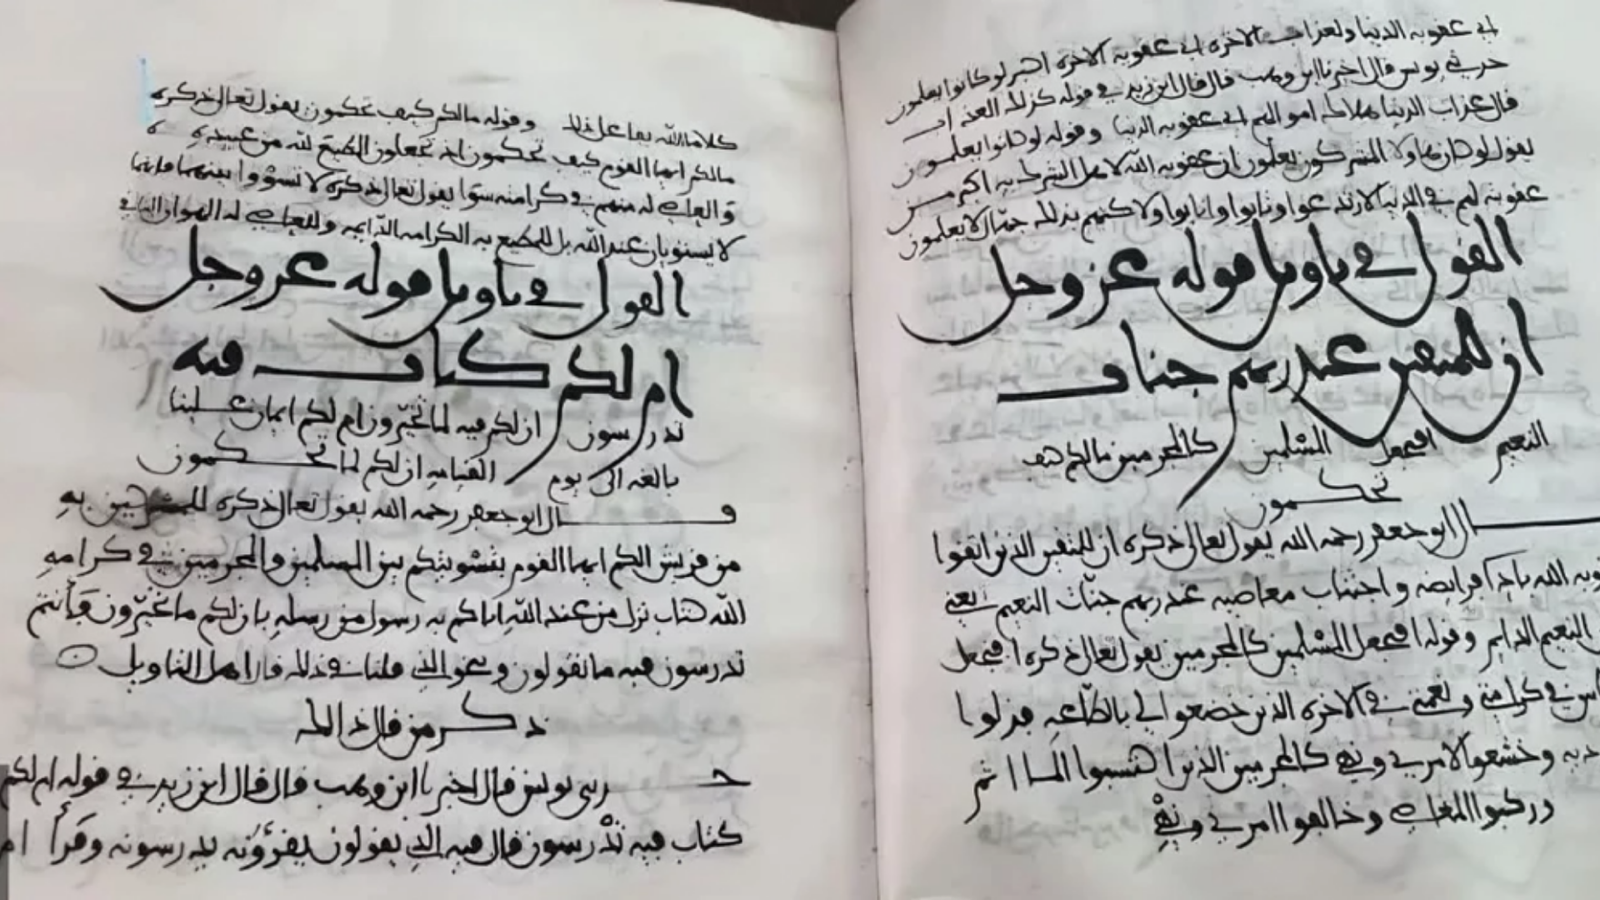 اي عقوبه الدنيا ولعذاب الاخره اي عقوبه الاخره اكبر لو كانوا يعلمون
حدثني يونس قال اخبرنا ابن وهب قال قال ابن زيد في قوله كذلك العذاب
قال عذاب الدنيا هلاك اموالهم اي عقوبه الدنيا وقوله لو كانوا يعلمون
يقول لو كان هاولا المشركون يعلمون ان عقوبه الله لاهل الشرك به اكبر من
عقوبته لهم في الدنيا لارتدعوا وتابوا وانابوا ولاكنهم بذلك جهال لا يعلمون
القول في تاويل قوله عز وجل
ان للمتقين عند ربهم جنات
النعيم افنجعل المسلمين كالمجرمين مالكم كيف
تحكمون
ال ابو جعفر رحمه الله يقول تعالى ذكره ان للمتقين الذين اتقوا
وبه الله باداء فرايضه واجتناب معاصيه عند ربهم جنات النعيم يعني
النعيم الدايم وقوله افنجعل المسلمين كالمجرمين يقول تعالى ذكره افنجعل
اس في كرامتي ونعمتي في الاخره الذين خضعوا لي بالطاعه وذلوا
وخشعوا لامري ونهيي كالمجرمين الذين اكتسبوا المااثم
وركبوا المعاصي وخالفوا امري ونهيي
كلا ما الله بفاعل ذلك وقوله مالكم كيف تحكمون يقول تعالى ذكره
مالكم ايها القوم كيف تحكمون اذ تجعلون المطيع لله من عبيده
والعاصي له منهم في كرامته سوا يقول تعالى ذكره لا تسووا بينهما فانهما
لا يستويان عند الله بل للمطيع به الكرامه الدايمه وللعاصي له الهوان
القول في تاويل قوله عز وجل
ام لكم كتاب فيه
تدرسون ان لكم فيه لما تخيرون ام لكم ايمان علينا
بالغه الى يوم القيامه ان لكم لما تحكمون
قال ابو جعفر رحمه الله يقول تعالى ذكره للمشركين به
من قريش الكم ايها القوم بتسويتكم بين المسلمين والمجرمين في كرامه
الله كتاب نزل من عند الله اتاكم به رسول من رسله بان لكم ما تخيرون فانتم
تدرسون فيه ما تقولون وبنحو الذي قلنا في ذلك قال اهل التاويل
ذكر من قال ذالك
حدثني يونس قال اخبرنا ابن وهب قال قال ابن زيد في قوله ام لكم
كتاب فيه تدرسون قال فيه الذي يقولون يقرءونه يدرسونه وقرأ ام